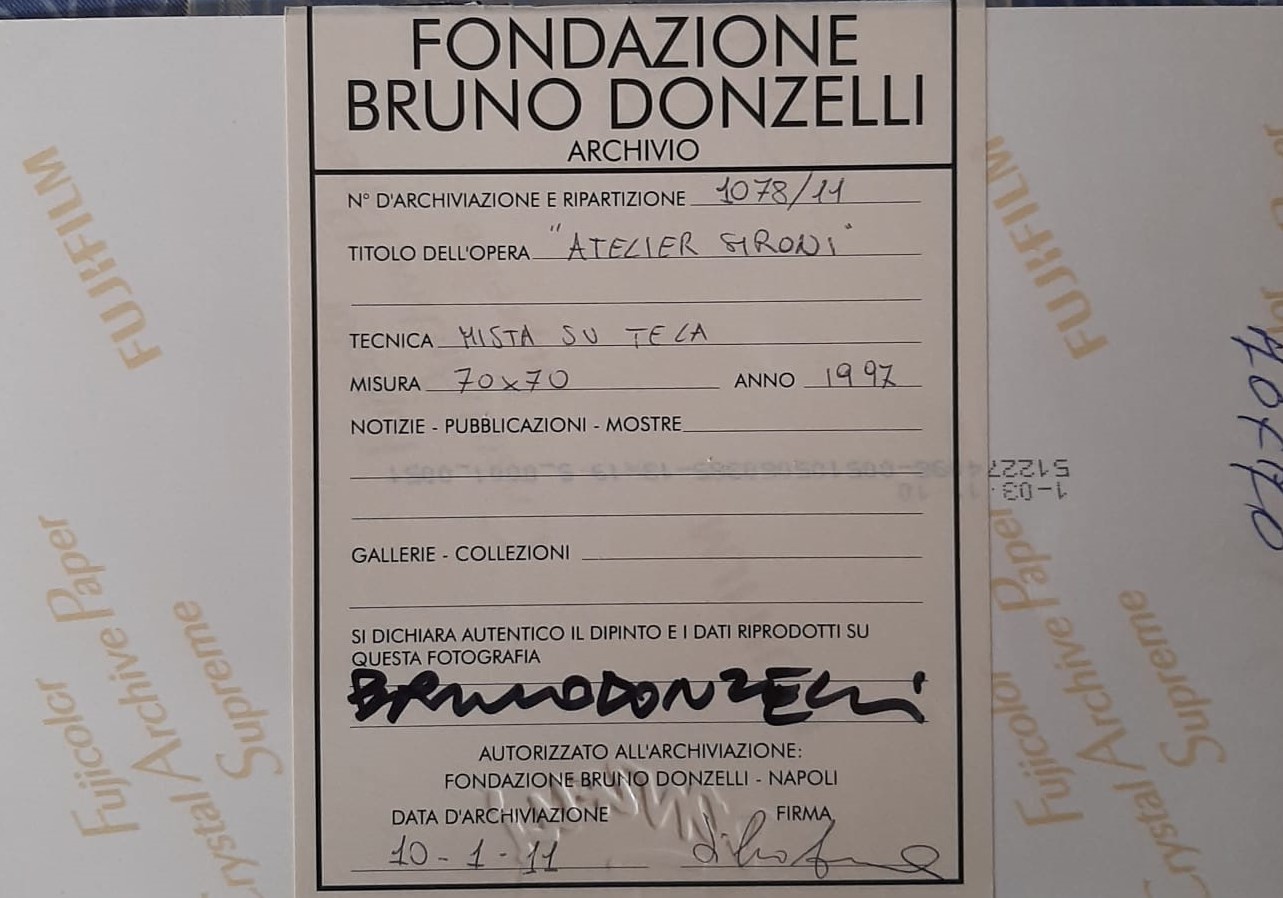 FONDAZIONE
BRUNO DONZELLI
ARCHIVIO
N° D'ARCHIVIAZIONE E RIPARTIZIONE 1078/11
TITOLO DELL'OPERA "ATELIER SIRONI"
TECNICA MISTA SU TELA
MISURA 70x70 ANNO 1997
NOTIZIE - PUBBLICAZIONI - MOSTRE
GALLERIE - COLLEZIONI
SI DICHIARA AUTENTICO IL DIPINTO E I DATI RIPRODOTTI SU
QUESTA FOTOGRAFIA
BRUNO DONZELLI
AUTORIZZATO ALL'ARCHIVIAZIONE:
FONDAZIONE BRUNO DONZELLI - NAPOLI
DATA D'ARCHIVIAZIONE FIRMA
10-1-11
FUJIFILM
Fujicolor
Crystal Archive Paper
Supreme
FUJIFILM
Fujicolor
Crystal Archive Paper
Supreme
70x70